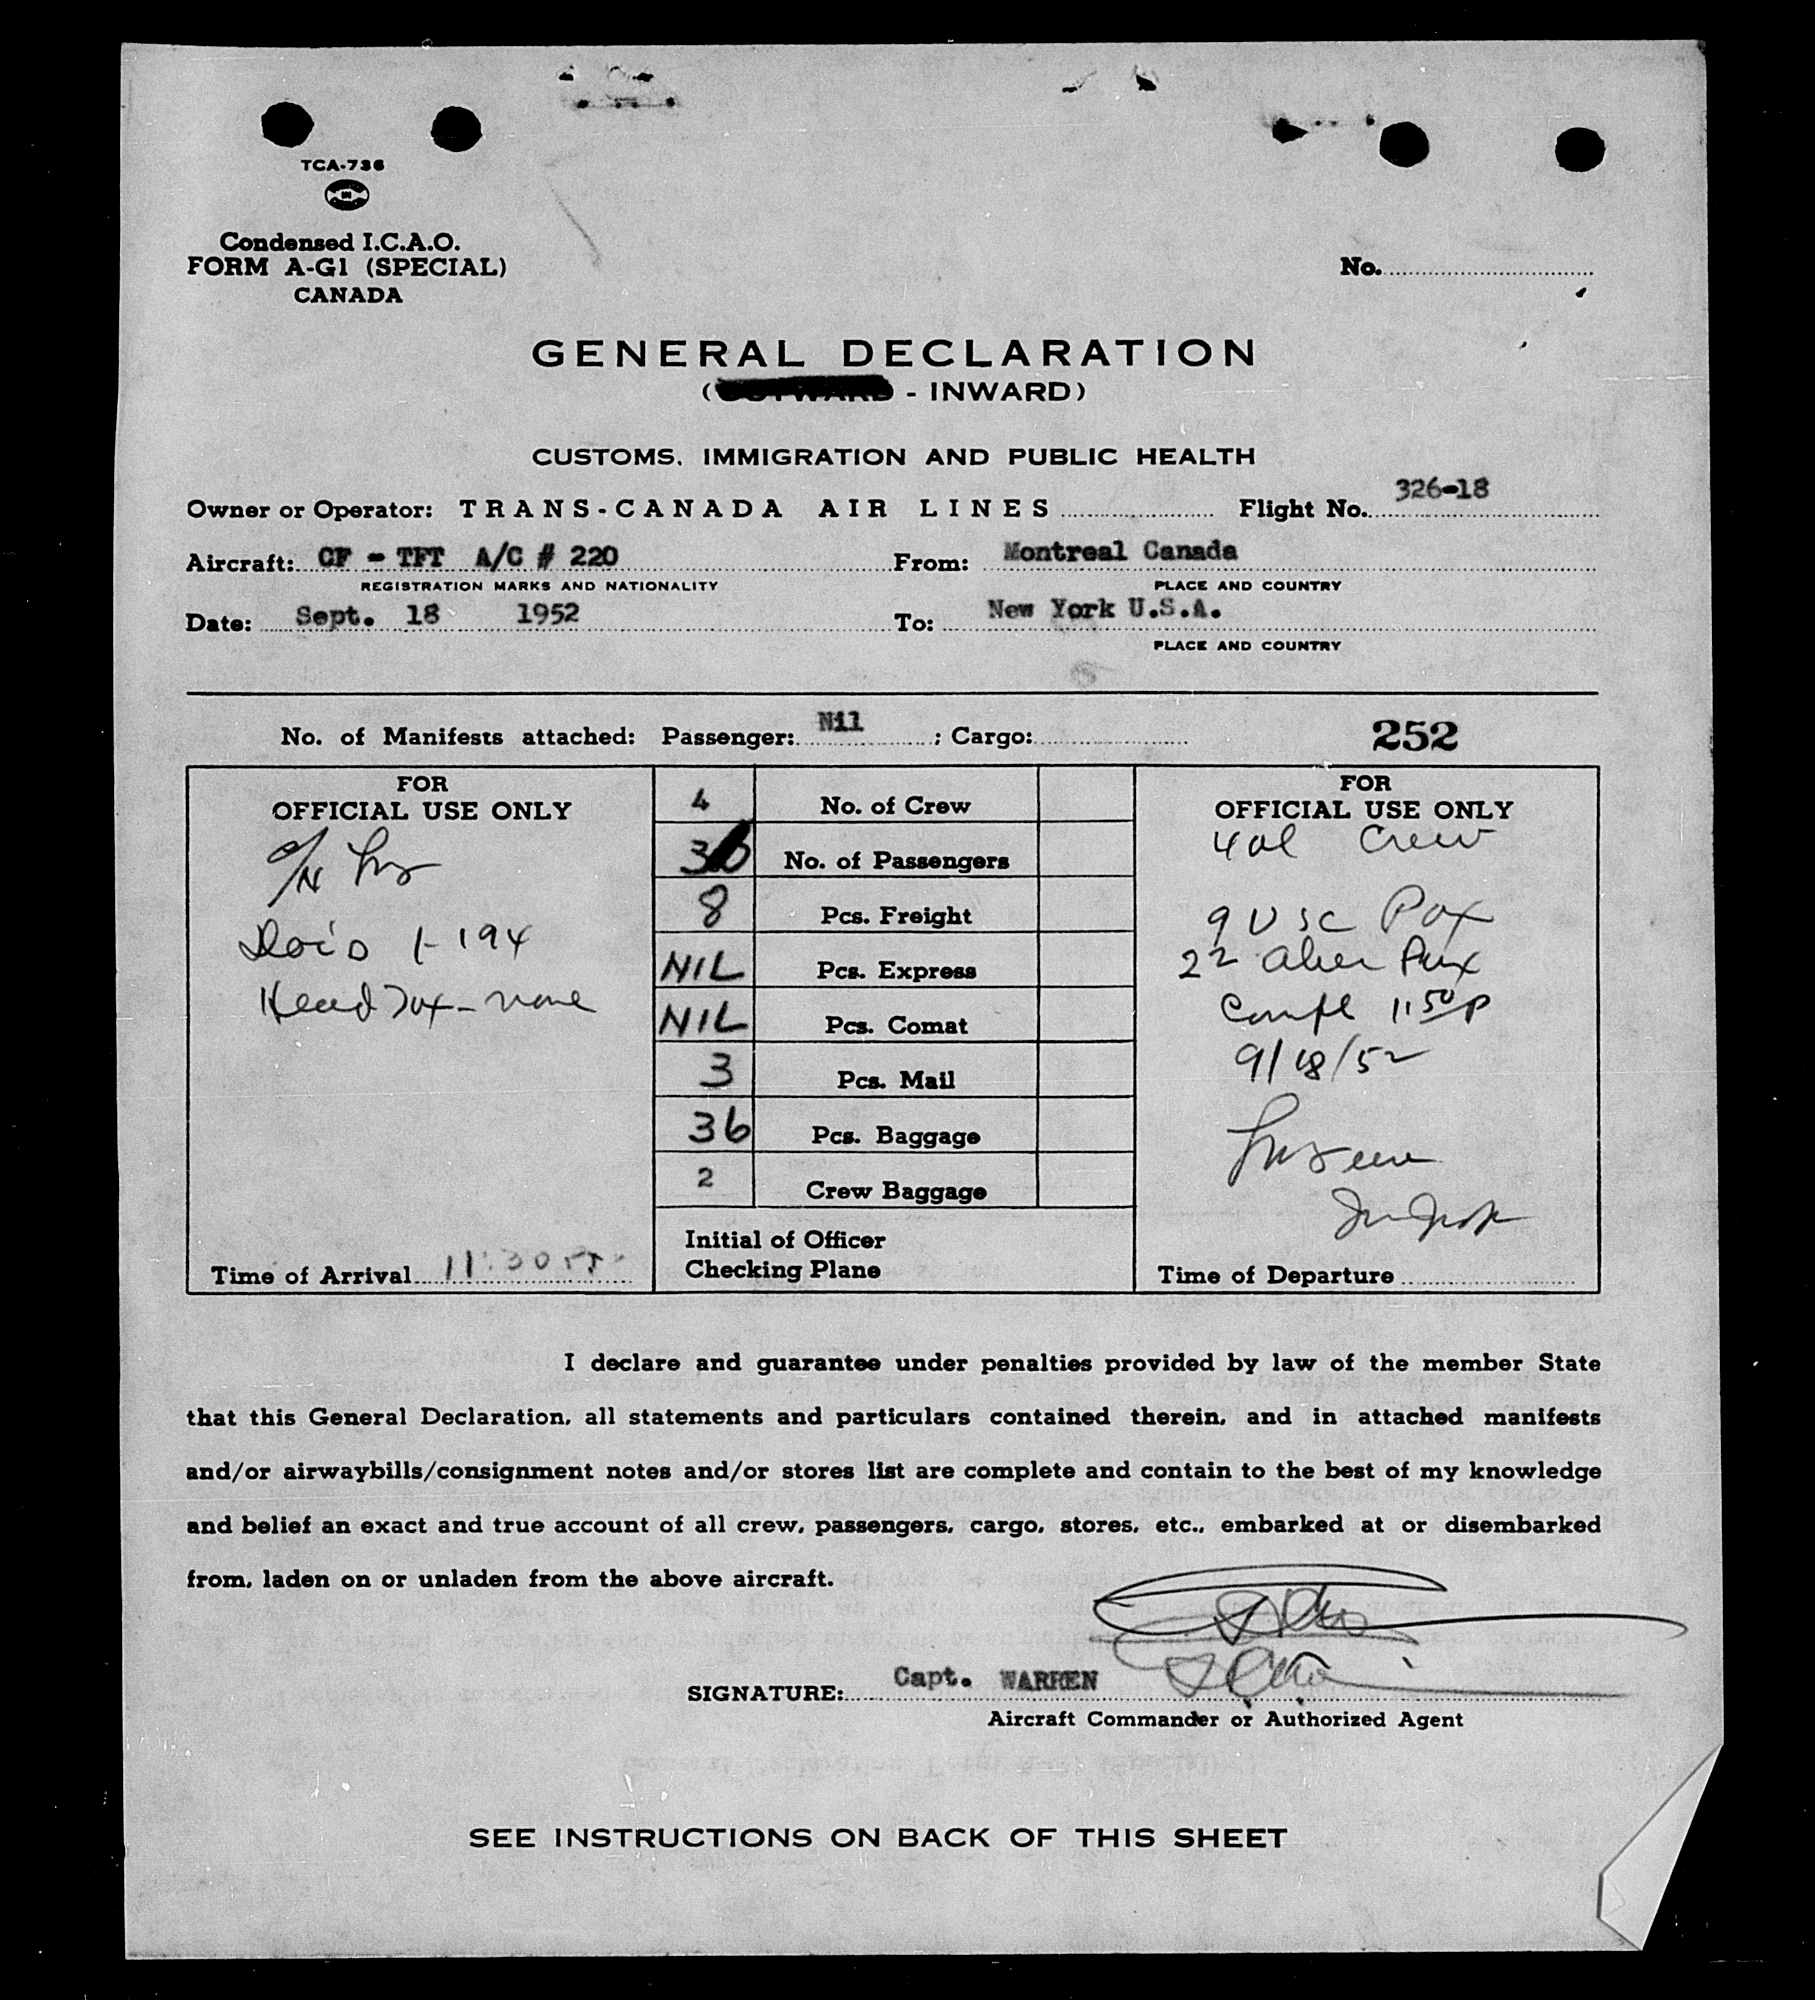 TCA-736
Condensed I.C.A.O.
FORM A-G1 (SPECIAL)
CANADA
No.
GENERAL DECLARATION
(OUTWARD - INWARD)
CUSTOMS, IMMIGRATION AND PUBLIC HEALTH
Owner or Operator: TRANS-CANADA AIR LINES Flight No. 326-18
Aircraft: CF - TFT A/C # 220 From: Montreal Canada
REGISTRATION MARKS AND NATIONALITY PLACE AND COUNTRY
Date: Sept. 18 1952 To: New York U.S.A.
PLACE AND COUNTRY
No. of Manifests attached: Passenger: Nil ; Cargo: 252
FOR
OFFICIAL USE ONLY
1-194
Head Tax - none
Time of Arrival 11:30
4 No. of Crew
No. of Passengers
8 Pcs. Freight
NIL Pcs. Express
NIL Pcs. Comat
3 Pcs. Mail
36 Pcs. Baggage
2 Crew Baggage
Initial of Officer
Checking Plane
FOR
OFFICIAL USE ONLY
4 al Crew
9 USC Pax
22 alien Pax
Compl 1:50p
9/18/52
Time of Departure
I declare and guarantee under penalties provided by law of the member State
that this General Declaration, all statements and particulars contained therein, and in attached manifests
and/or airwaybills/consignment notes and/or stores list are complete and contain to the best of my knowledge
and belief an exact and true account of all crew, passengers, cargo, stores, etc., embarked at or disembarked
from, laden on or unladen from the above aircraft.
SIGNATURE: Capt. WARREN
Aircraft Commander or Authorized Agent
SEE INSTRUCTIONS ON BACK OF THIS SHEET